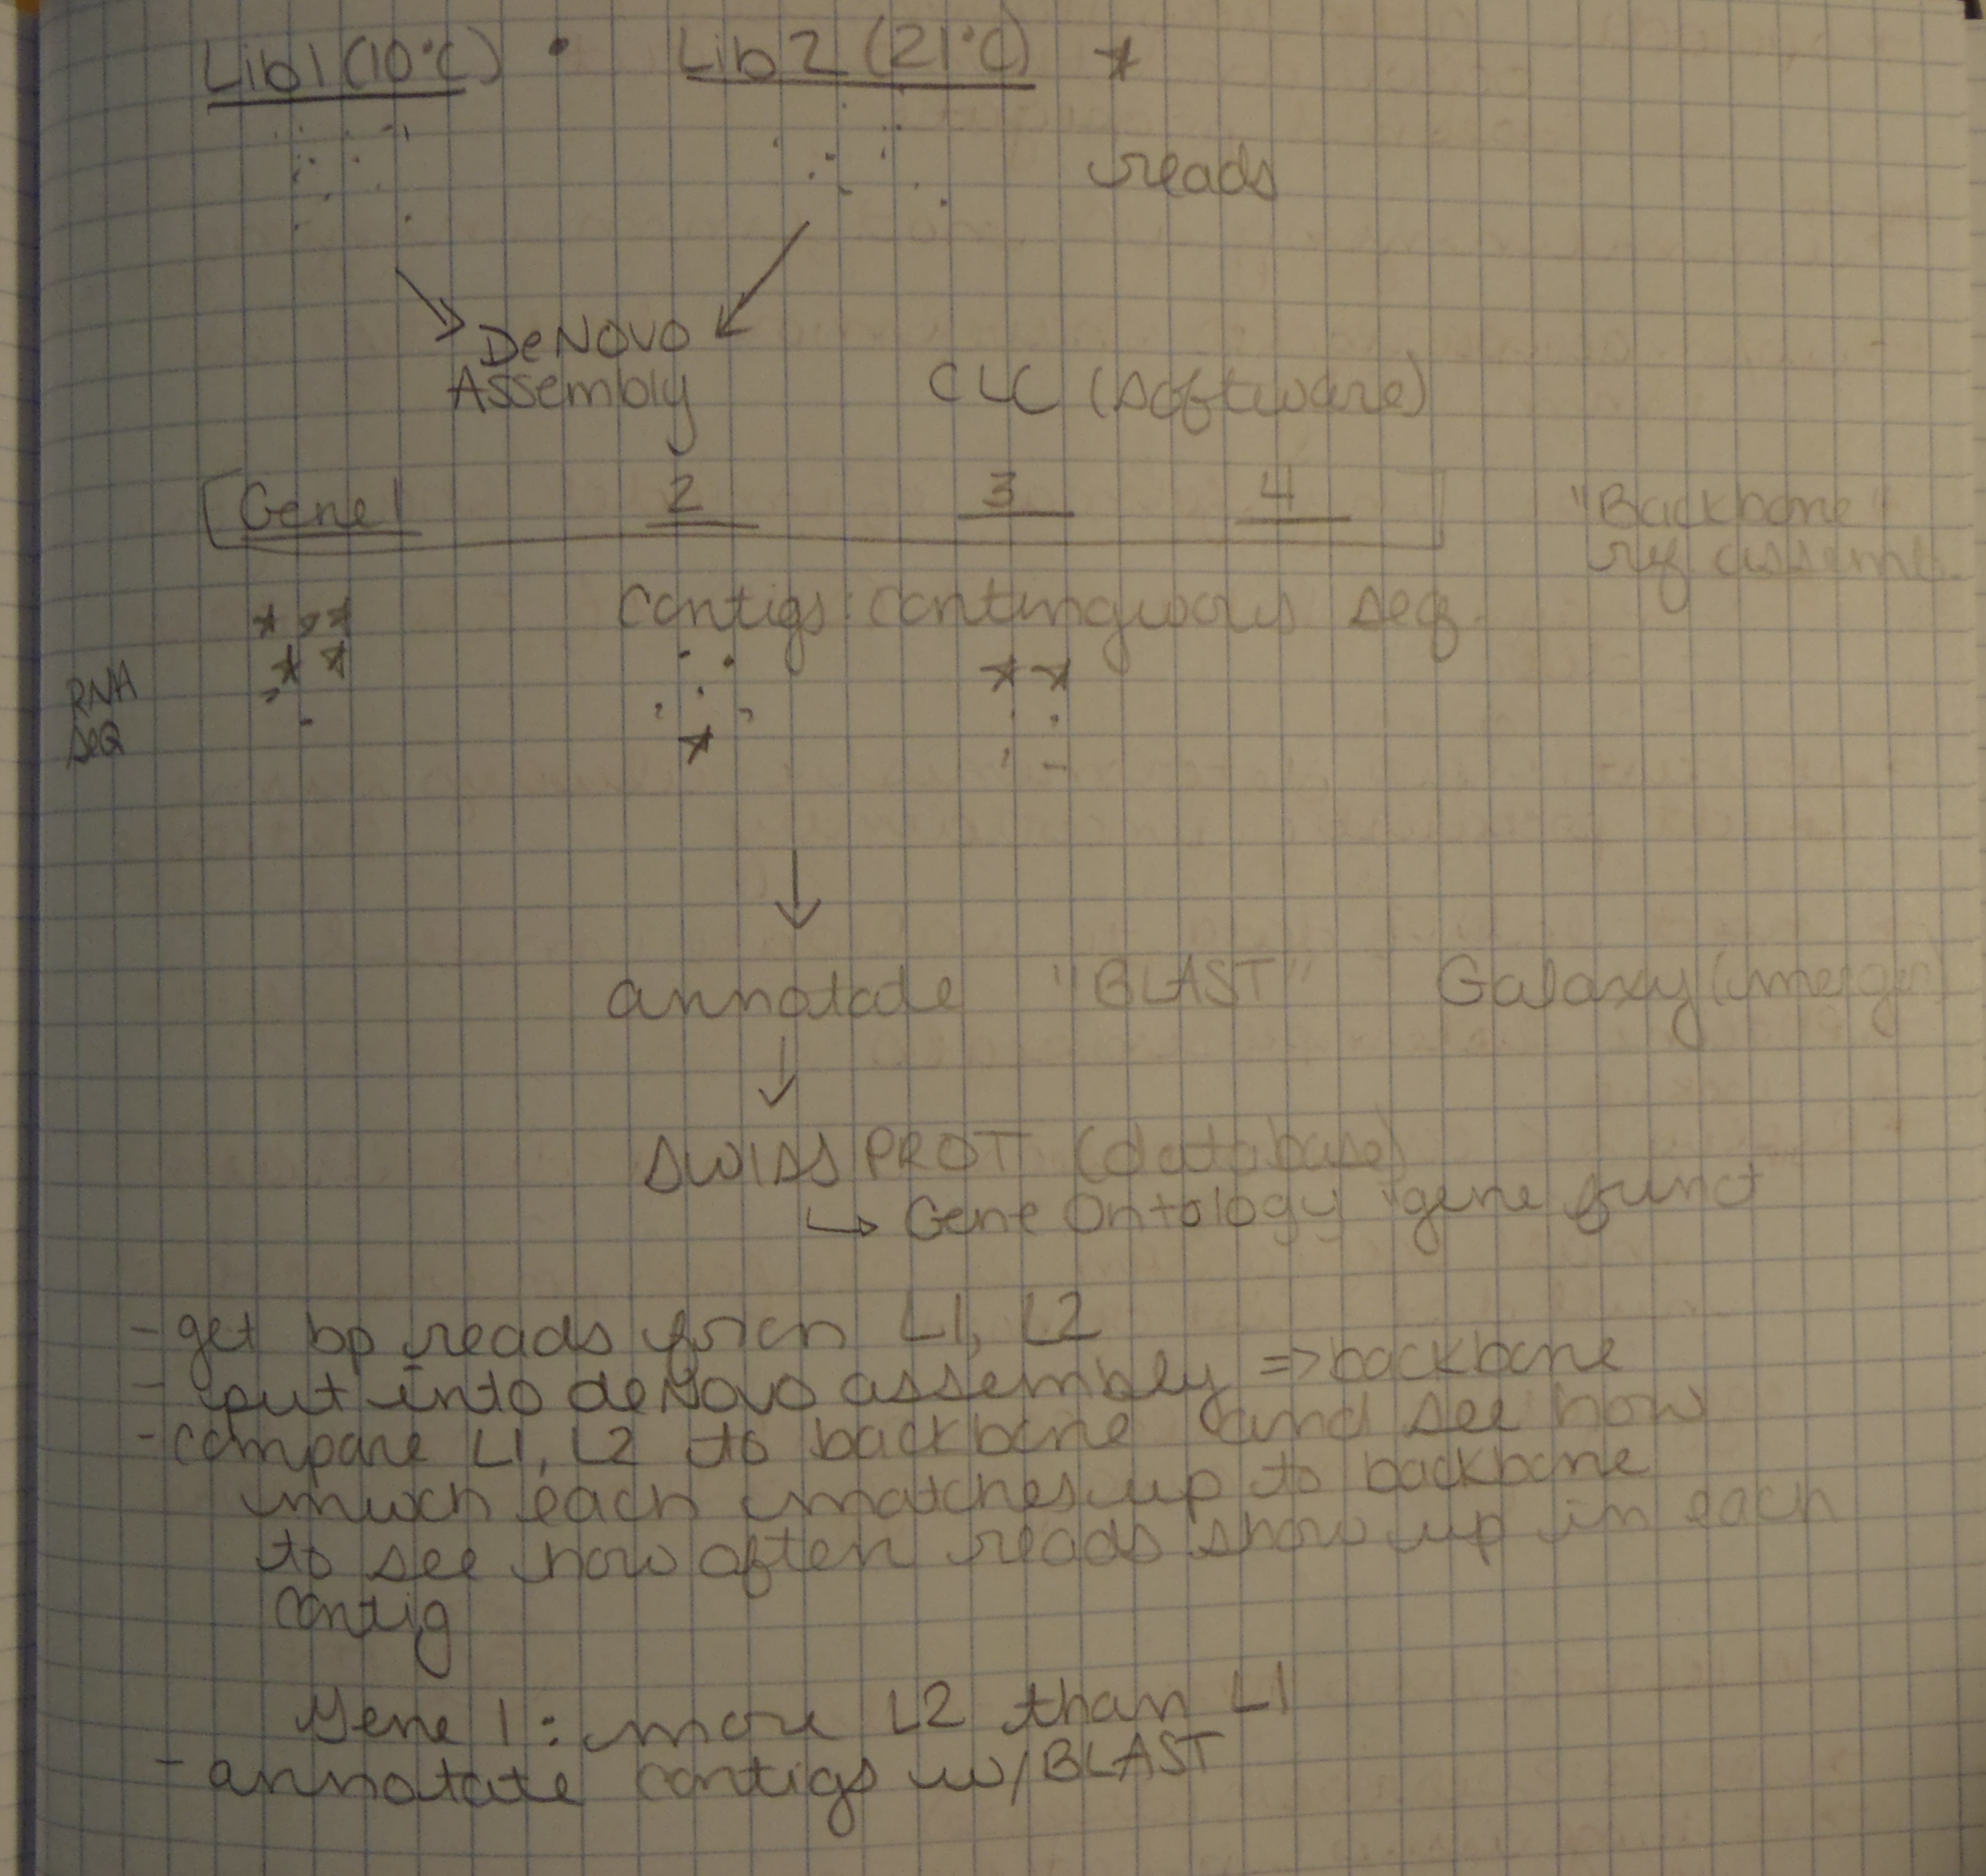 Lib 1 (10°C) • Lib 2 (21°C) *
reads
DeNovo
Assembly
CLC (software)
Gene 1 2 3 4
"Backbone"
ref assemb.
contigs: continguous seq.
RNA
SeQ
annotate "BLAST" Galaxy (merges)
SWISS PROT (database)
↳ Gene Ontology : gene funct
- get bp reads from L1, L2
- put into deNovo assembly => backbone
- compare L1, L2 to backbone and see how
much each matches up to backbone
to see how often reads show up in each
contig
Gene 1: more L2 than L1
- annotate contigs w/ BLAST